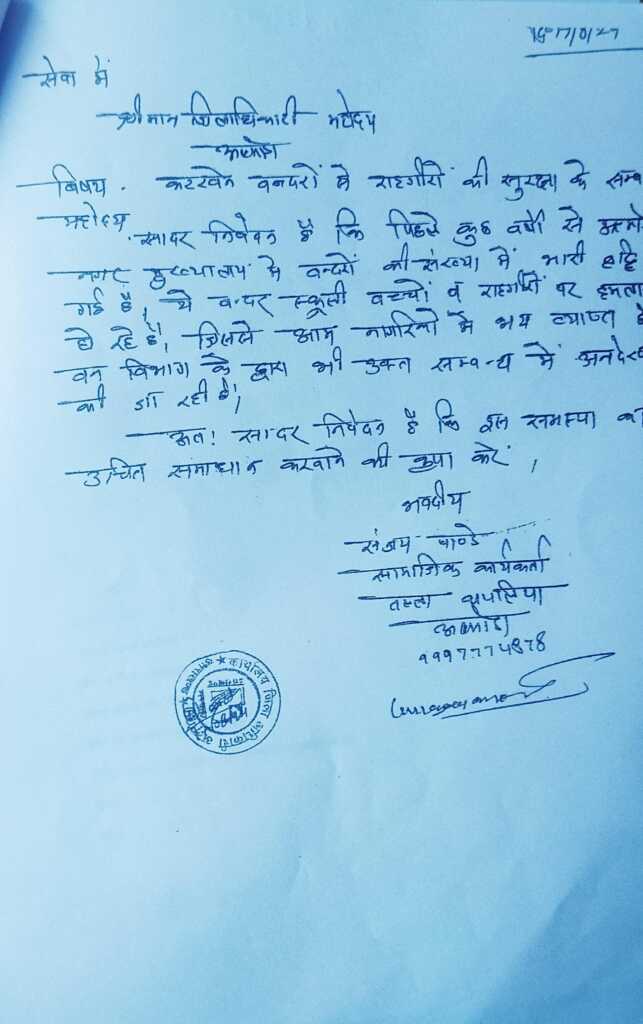 सेवा में
श्रीमान जिलाधिकारी महोदय
अल्मोड़ा
विषय - कटखने बन्दरों से राहगीरों की सुरक्षा के सम्ब
महोदय
सादर निवेदन है कि पिछले कुछ वर्षों से
नगर मुख्यालय में बन्दरों की संख्या में भारी वृद्धि
गई है, ये बन्दर स्कूली बच्चों व राहगीरों पर हमला
हो रहे है, जिससे आम नागरिकों में भय व्याप्त है
वन विभाग के द्वारा भी उक्त सम्बन्ध में अनदेख
की जा रही है।
अत: सादर निवेदन है कि इस समस्या का
उचित समाधान करवाने की कृपा करें।
भवदीय
संजय पाण्डे
सामाजिक कार्यकर्ता
तल्ला
अल्मोड़ा
9997774878
कार्यालय जिला अधिकारी